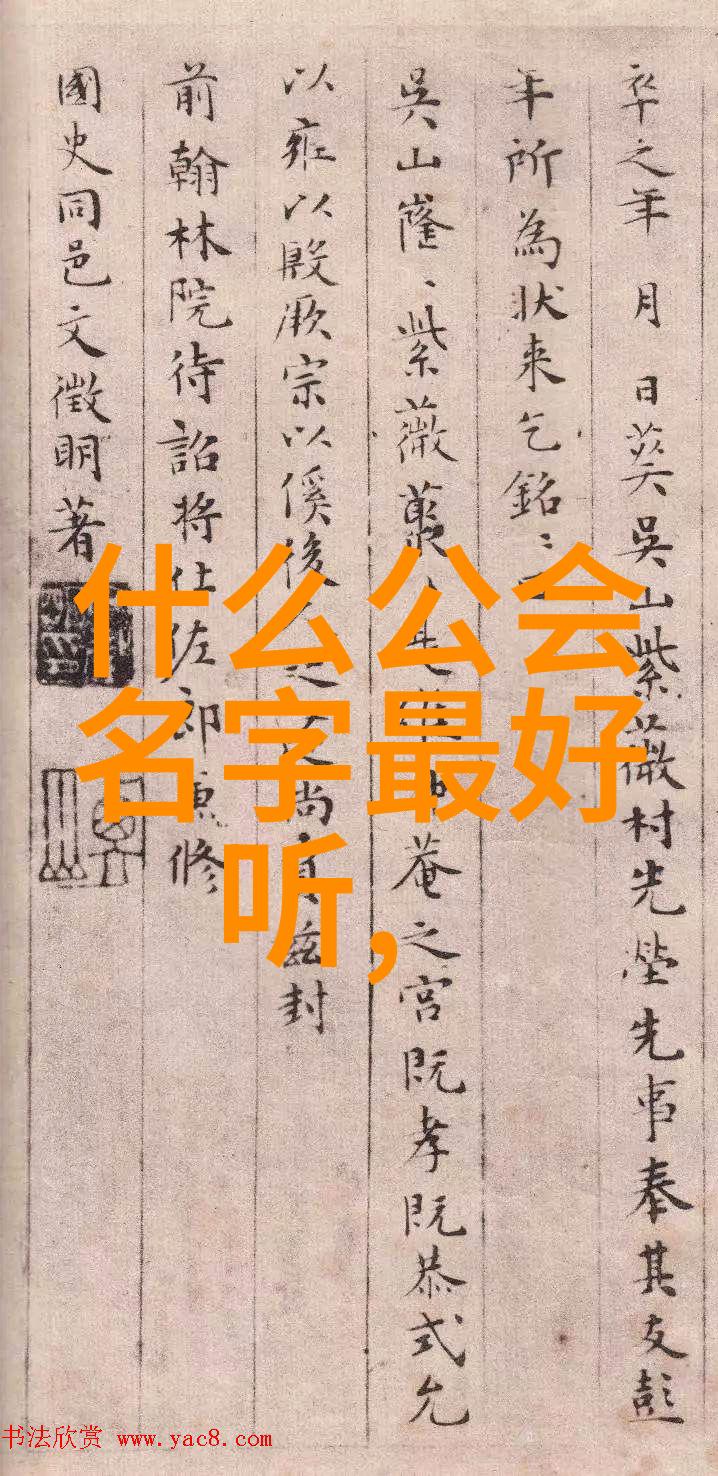 卒之年 月 日葬吳山紫薇村先塋先事奉其友彭
年所為狀来乞銘
吳山隆紫薇
之宮既孝既恭式允
以雍以殷厥宗以傒後
尚
茲封
前翰林院待詔将仕佐郎兼修
國史同邑文徵明著
什么公会
名字最好
听,
书法欣赏 www.yac8.com